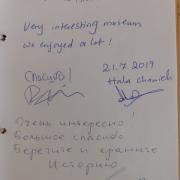 Very interesting museum
we enjoyed a lot!
21.7.2019
Спасибо!
Hala
Очень интересно!
Большое спасибо
Берегите и храните
Историю